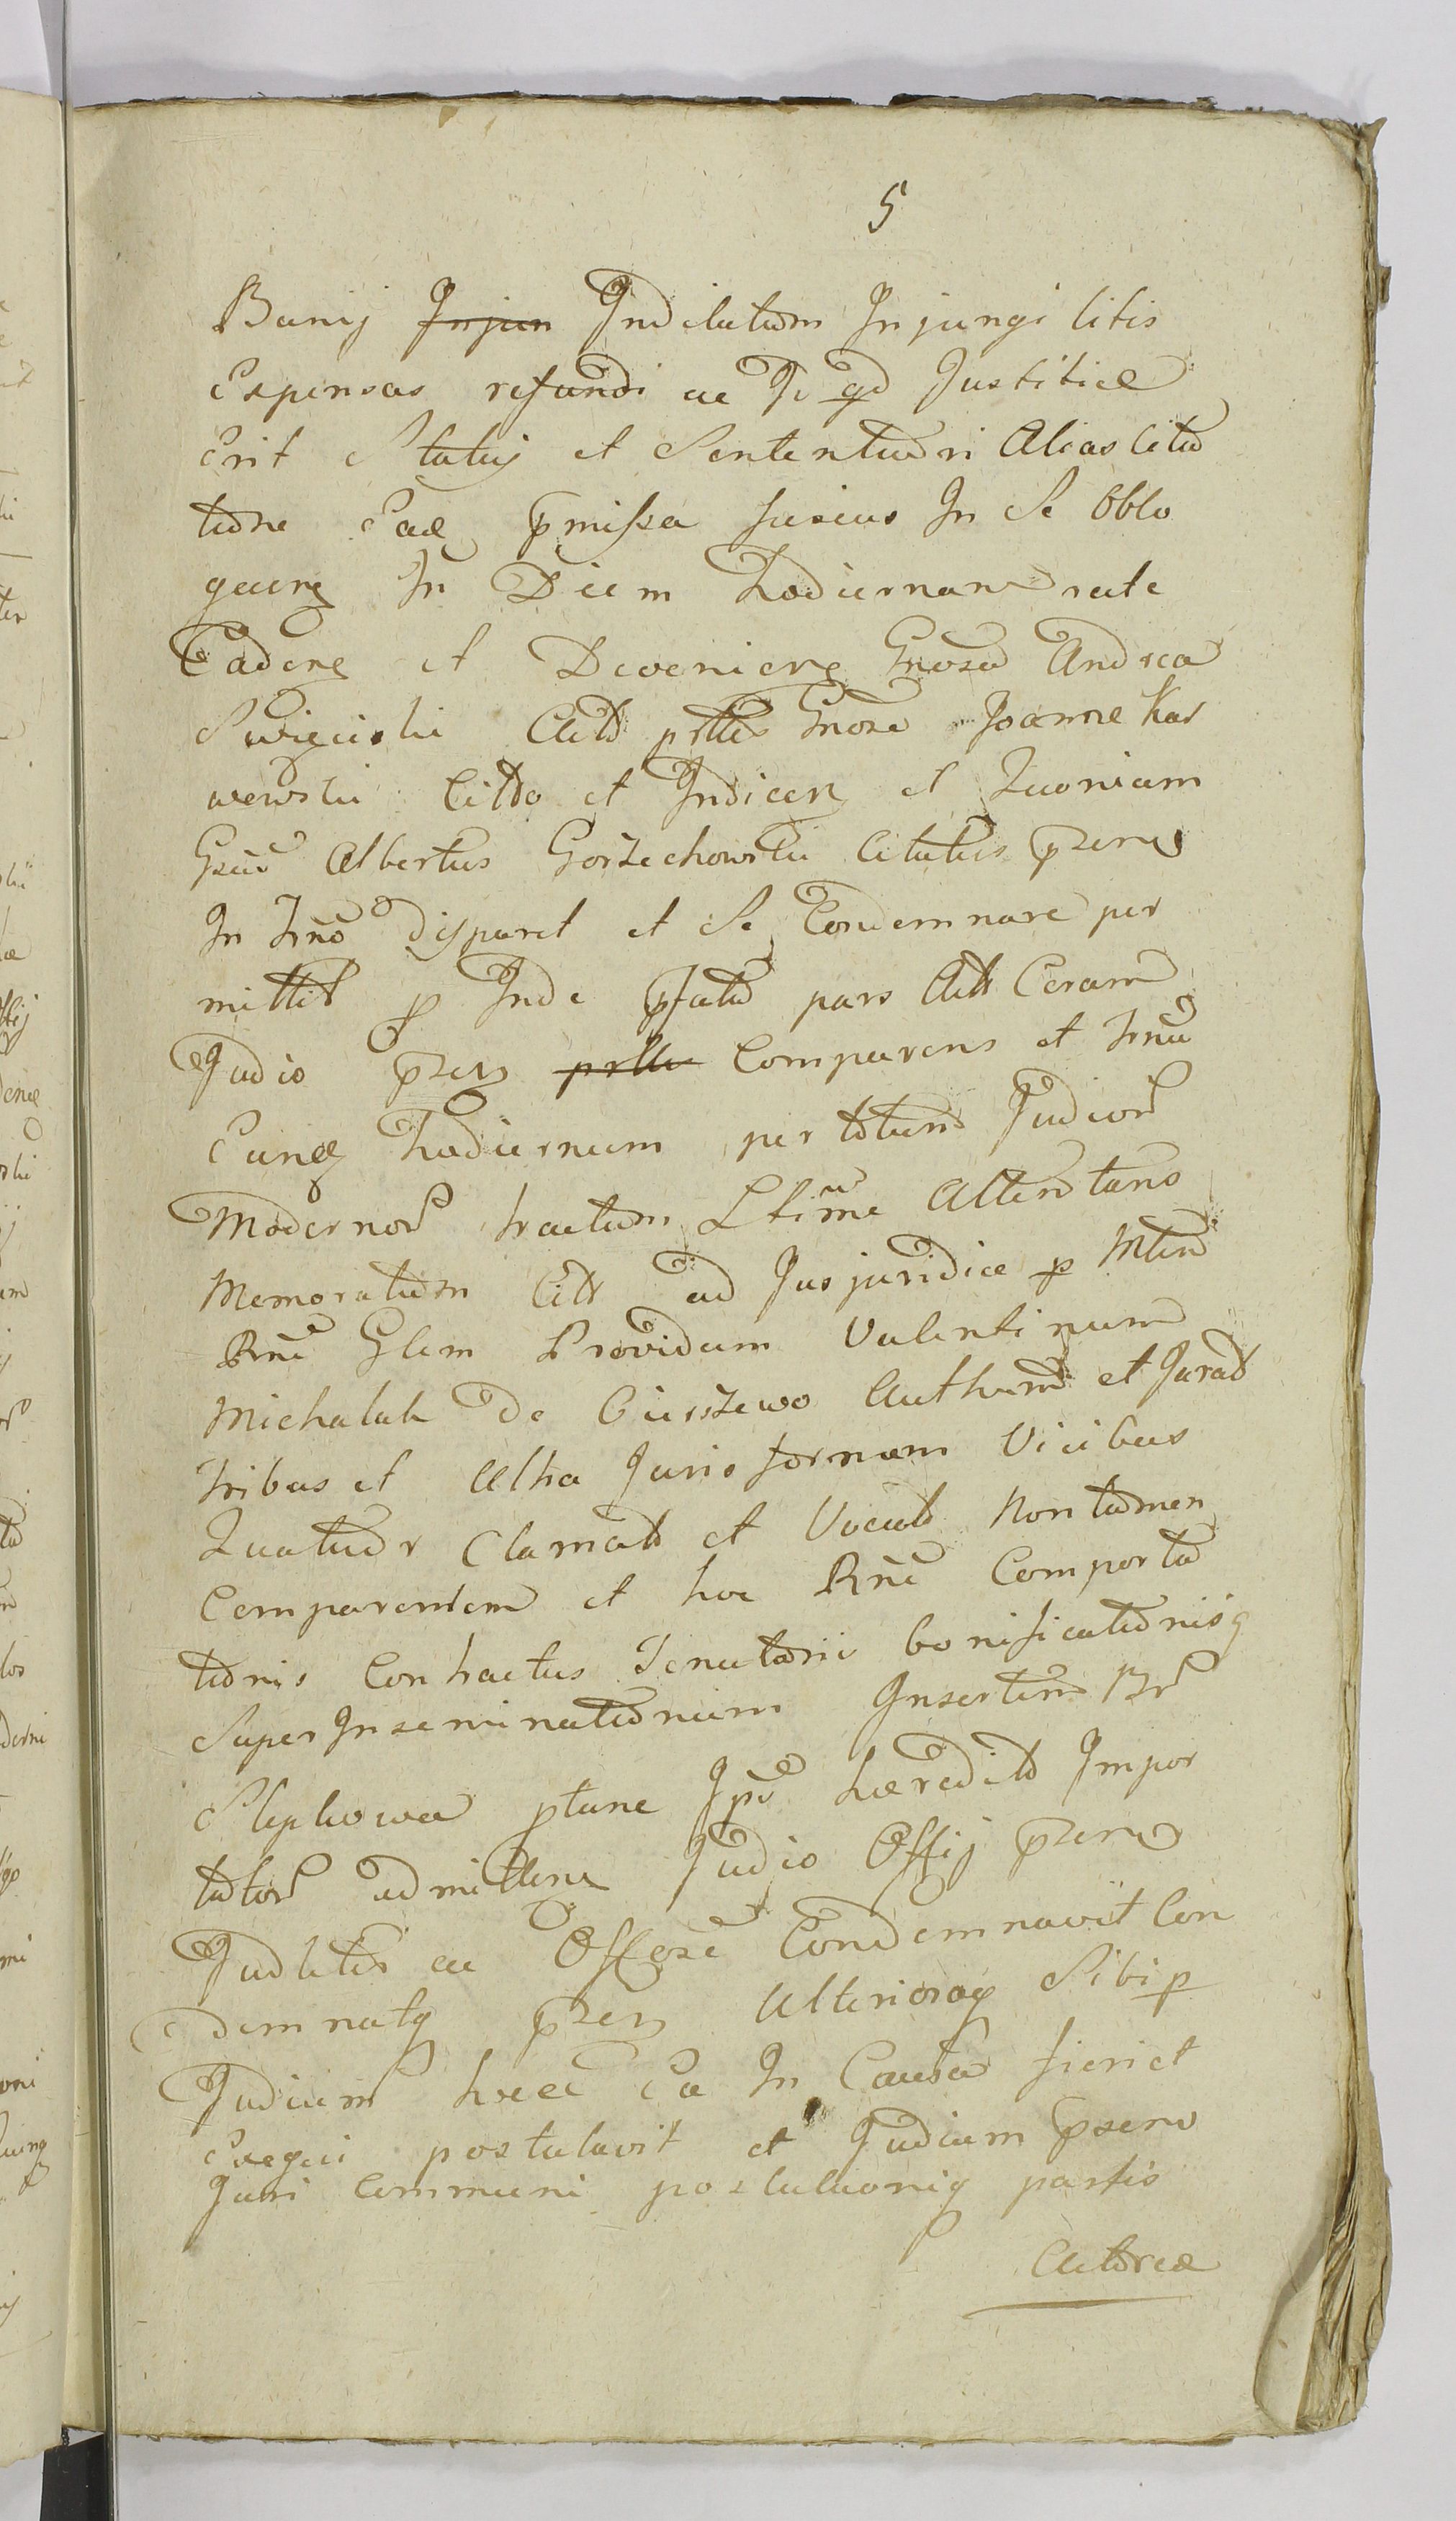 5
Banij Injun Indilatam Injungi litis
Expensas refundi ac Id qd Justitiæ
Erit Statuj et Sententiari Alias Cita
tione Eaq pmissa fusius In Se Oblo
quen In Diem hodiernam rite
Caden et Devenien Gnoso Andrea
Swięciski Act Gnose Joanne Kar
wewski Citto et Indicen et Quoniam
Gsus Albertus Gorzechowski Citatus pzens
In Trno disparet et Se Condemnare per
mittit p Inde pfata pars Act Coram
Judio pzen prlte Comparens et Trnu
Eunq hodiernum per totum Judior
Modernor tractum Ltime Attentans
Memoratum Citt ad Jus juridice p Mtem
Rne Glem Providum Valentinum
Michalak de Cierszewo Authum et Jurat
tribus et Ultra Juris formam Vicibus
Quatuor Clamat et Vocat Non tamen
Comparentem et hoc Rne Comporta
tionis Contractus Tenutorii bonificationisq
Super Inseminationum Insertim Br
Slepkowa ptunc Ipi hæredit Impor
tator admitten Judio Offij pzens
Judlitr ac Offose Condemnavit Con
demnatq pzen Ulterioraq Sibi p
Judium hocce Ea In Causa fieri et
Exequi postulavit et Judium pzens
Juri Communi postulaoniq partis
Actoreæ